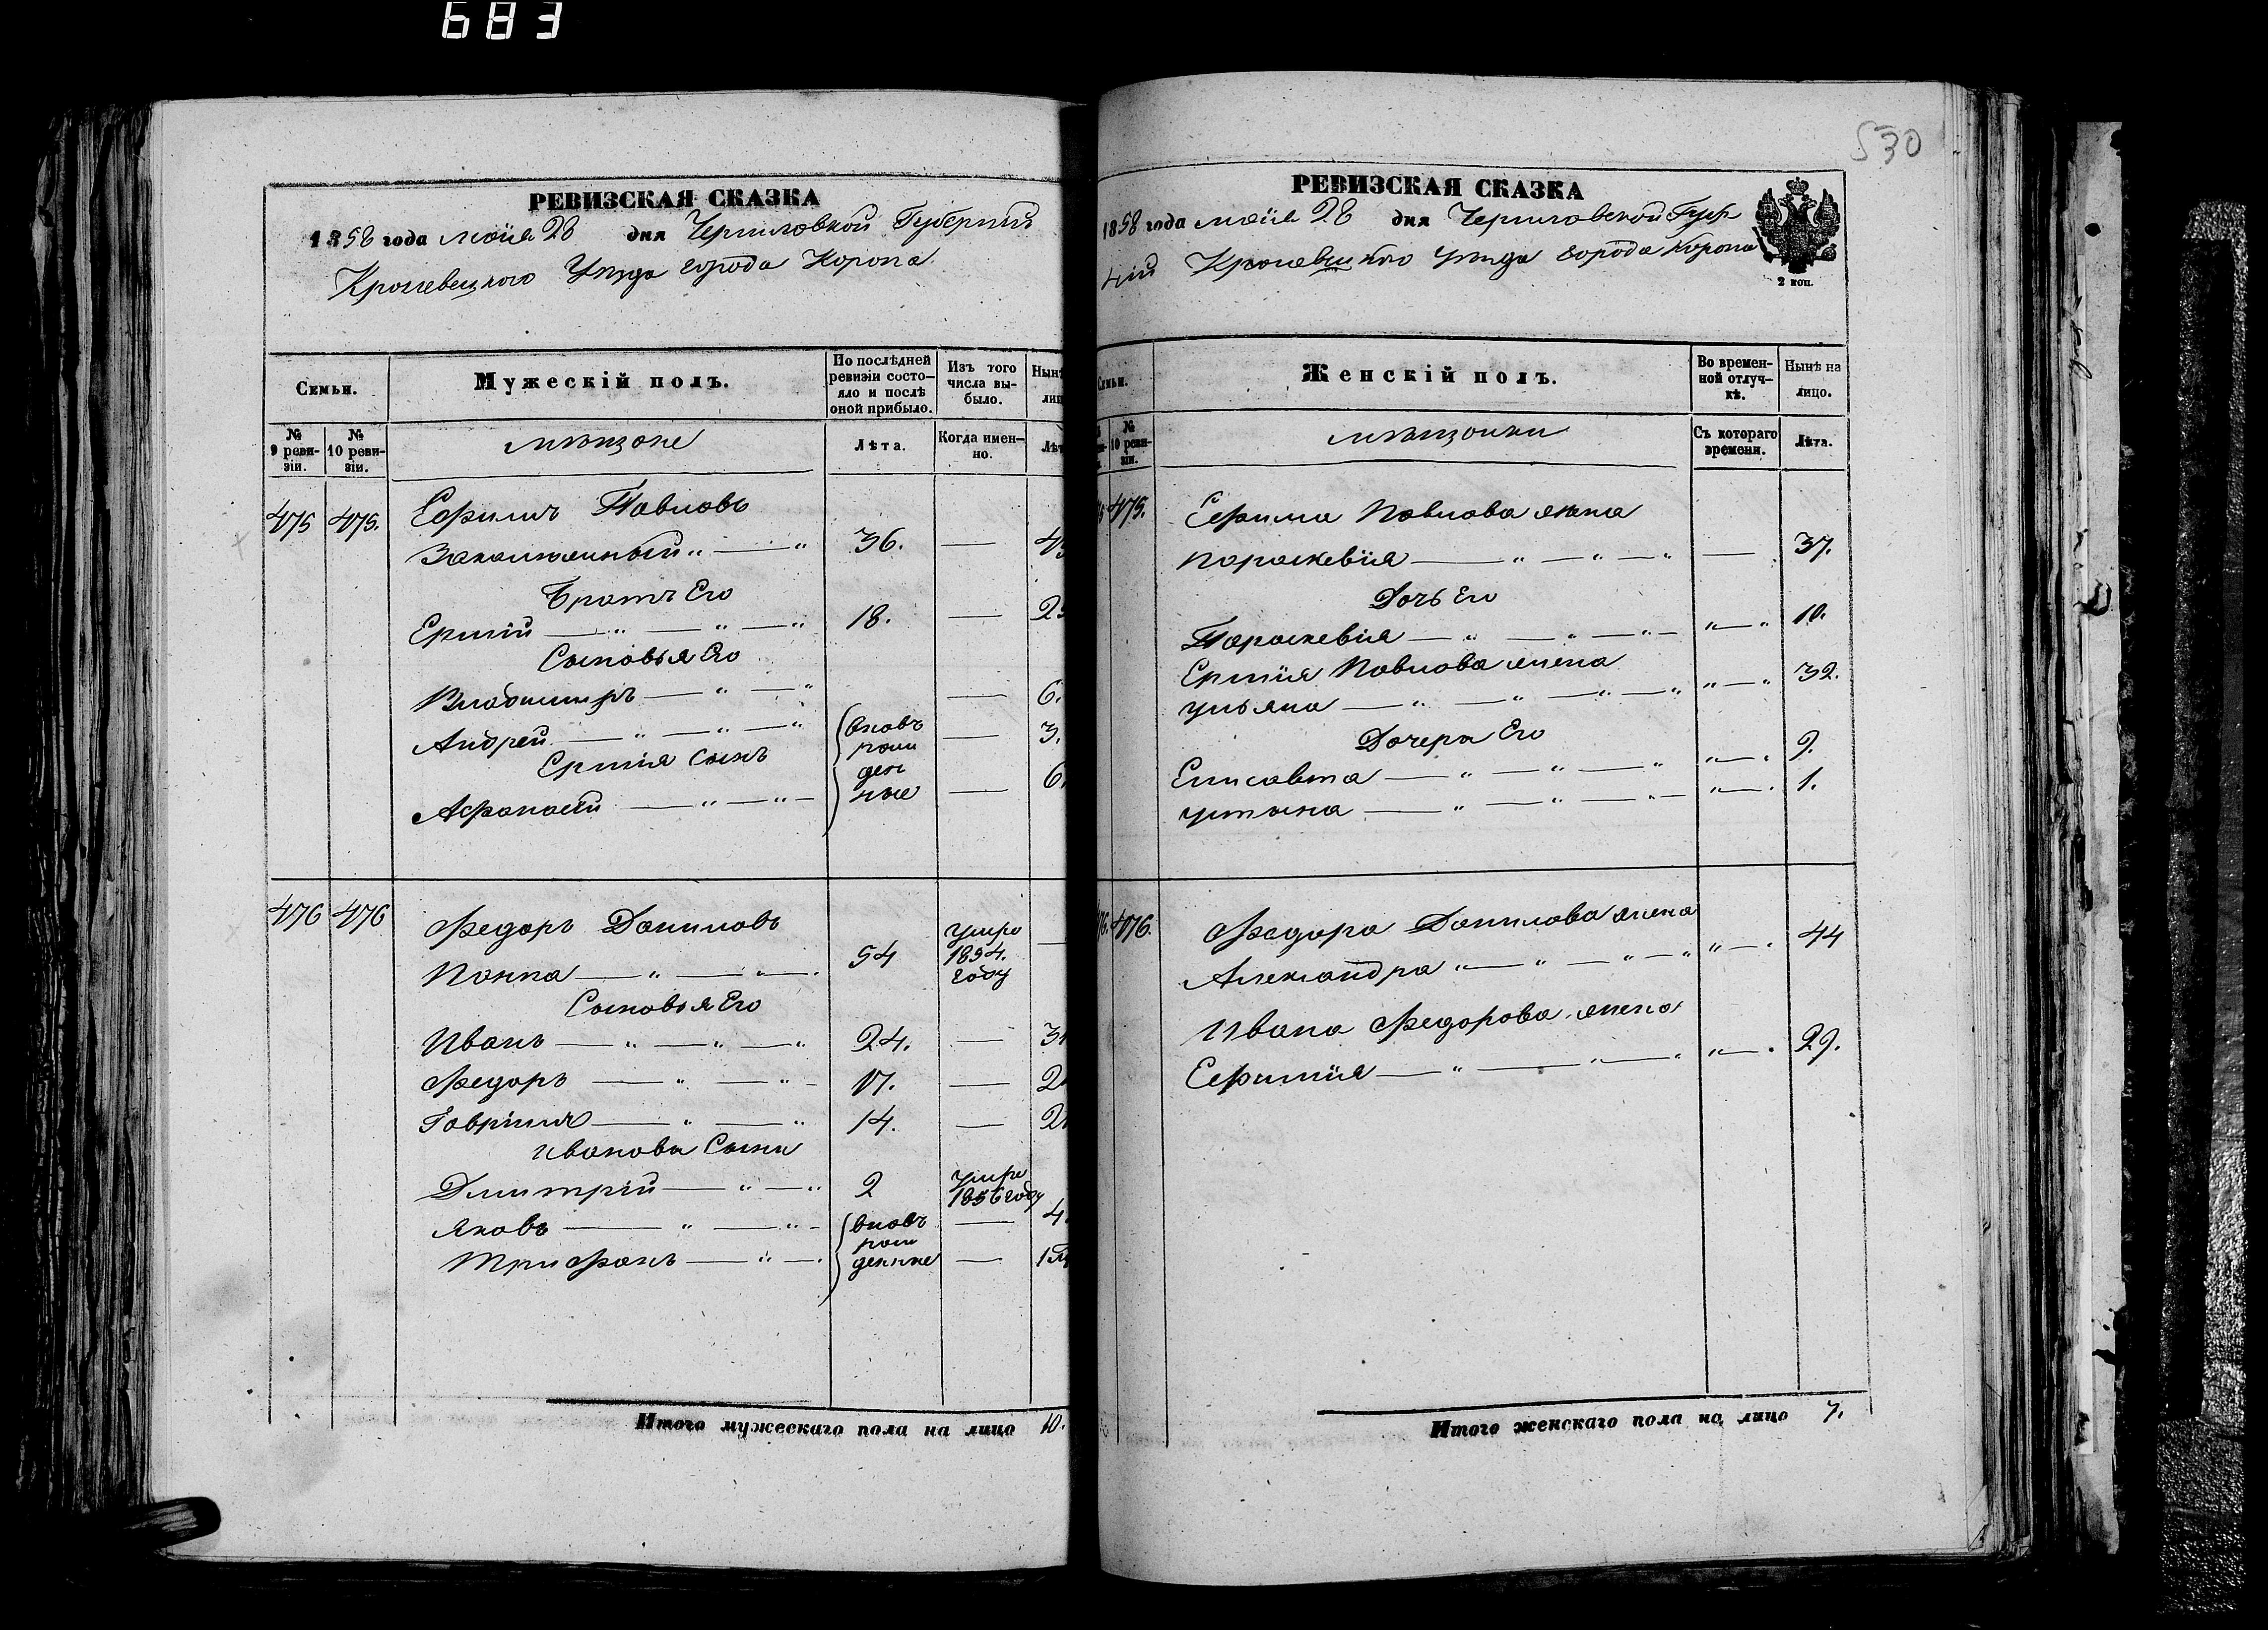 683
РЕВИЗСКАЯ СКАЗКА
1858 года маія 28 дня Черниговской Губерніи
Кролевецкого Уѣзда города Коропа
Семьи.
Мужескій полъ.
По послѣдней ревизіи состояло и послѣ оной прибыло.
Изъ того числа выбыло.
Нынѣ
лиц
№ 9 ревизіи.
№ 10 ревизіи.
мѣщане
Лѣта.
Когда именно.
Лѣт
475 475. Ефимъ Павловъ
36. — 4
Братъ Его
Ермій 18. — 2
Сыновья Его
Владимиръ — 6.
Андрей — 3.
Ермія Сынъ
Афанасій — 6
вновь
рож
ден
ные
476 476 Федоръ Даниловъ
Панка 54 умре 1854. году —
Сыновья Его
Иванъ 24. — 3
Федоръ 17. — 2
Гавріилъ 14. — 2
Ивановы Сыны
Дмитрій 2 умре 1856 году
Яковъ — 4.
Трифонъ — 1
вновь
рож
денные
Итого мужескаго пола на лицо 10.
530
РЕВИЗСКАЯ СКАЗКА
1858 года маія 28 дня Черниговской Губер
ніи Кролевецкого уѣзда города Коропа
2 коп.
Семьи.
Женскій полъ.
Во временной отлучкѣ.
Нынѣ на лицо.
№ 10 ревизіи.
мѣщанки
Съ котораго времени.
Лѣта.
475. Ефима Павлова жена
Параскевія — 37.
Дочь Его
Параскевія 10.
Ермія Павлова жена
Ульяна 32.
Дочери Его
Елисавета 9.
Устина 1.
476. Федора Данилова жена
Александра 44
Ивана Федорова жена
Ефимія 29.
Итого женскаго пола на лицо 7.